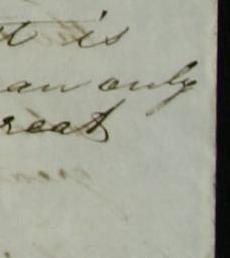 it is
an only
reat